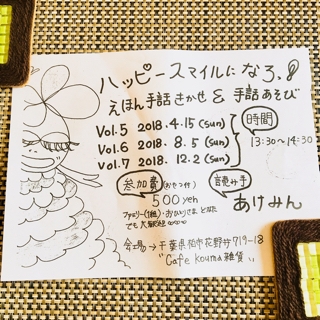 ハッピースマイルになろ♪
えほん手話きかせ & 手話あそび
Vol.5 2018.4.15(sun)
Vol.6 2018.8.5(sun)
Vol.7 2018.12.2(sun)
時間
13:30~14:30
参加費(おやつ付)
500yen
ファミリー(1組)・おひとりさま どなた
でも大歓迎
読み手
あけみん
会場→千葉県柏市花野井719-18
"Cafe kouma雑貨"